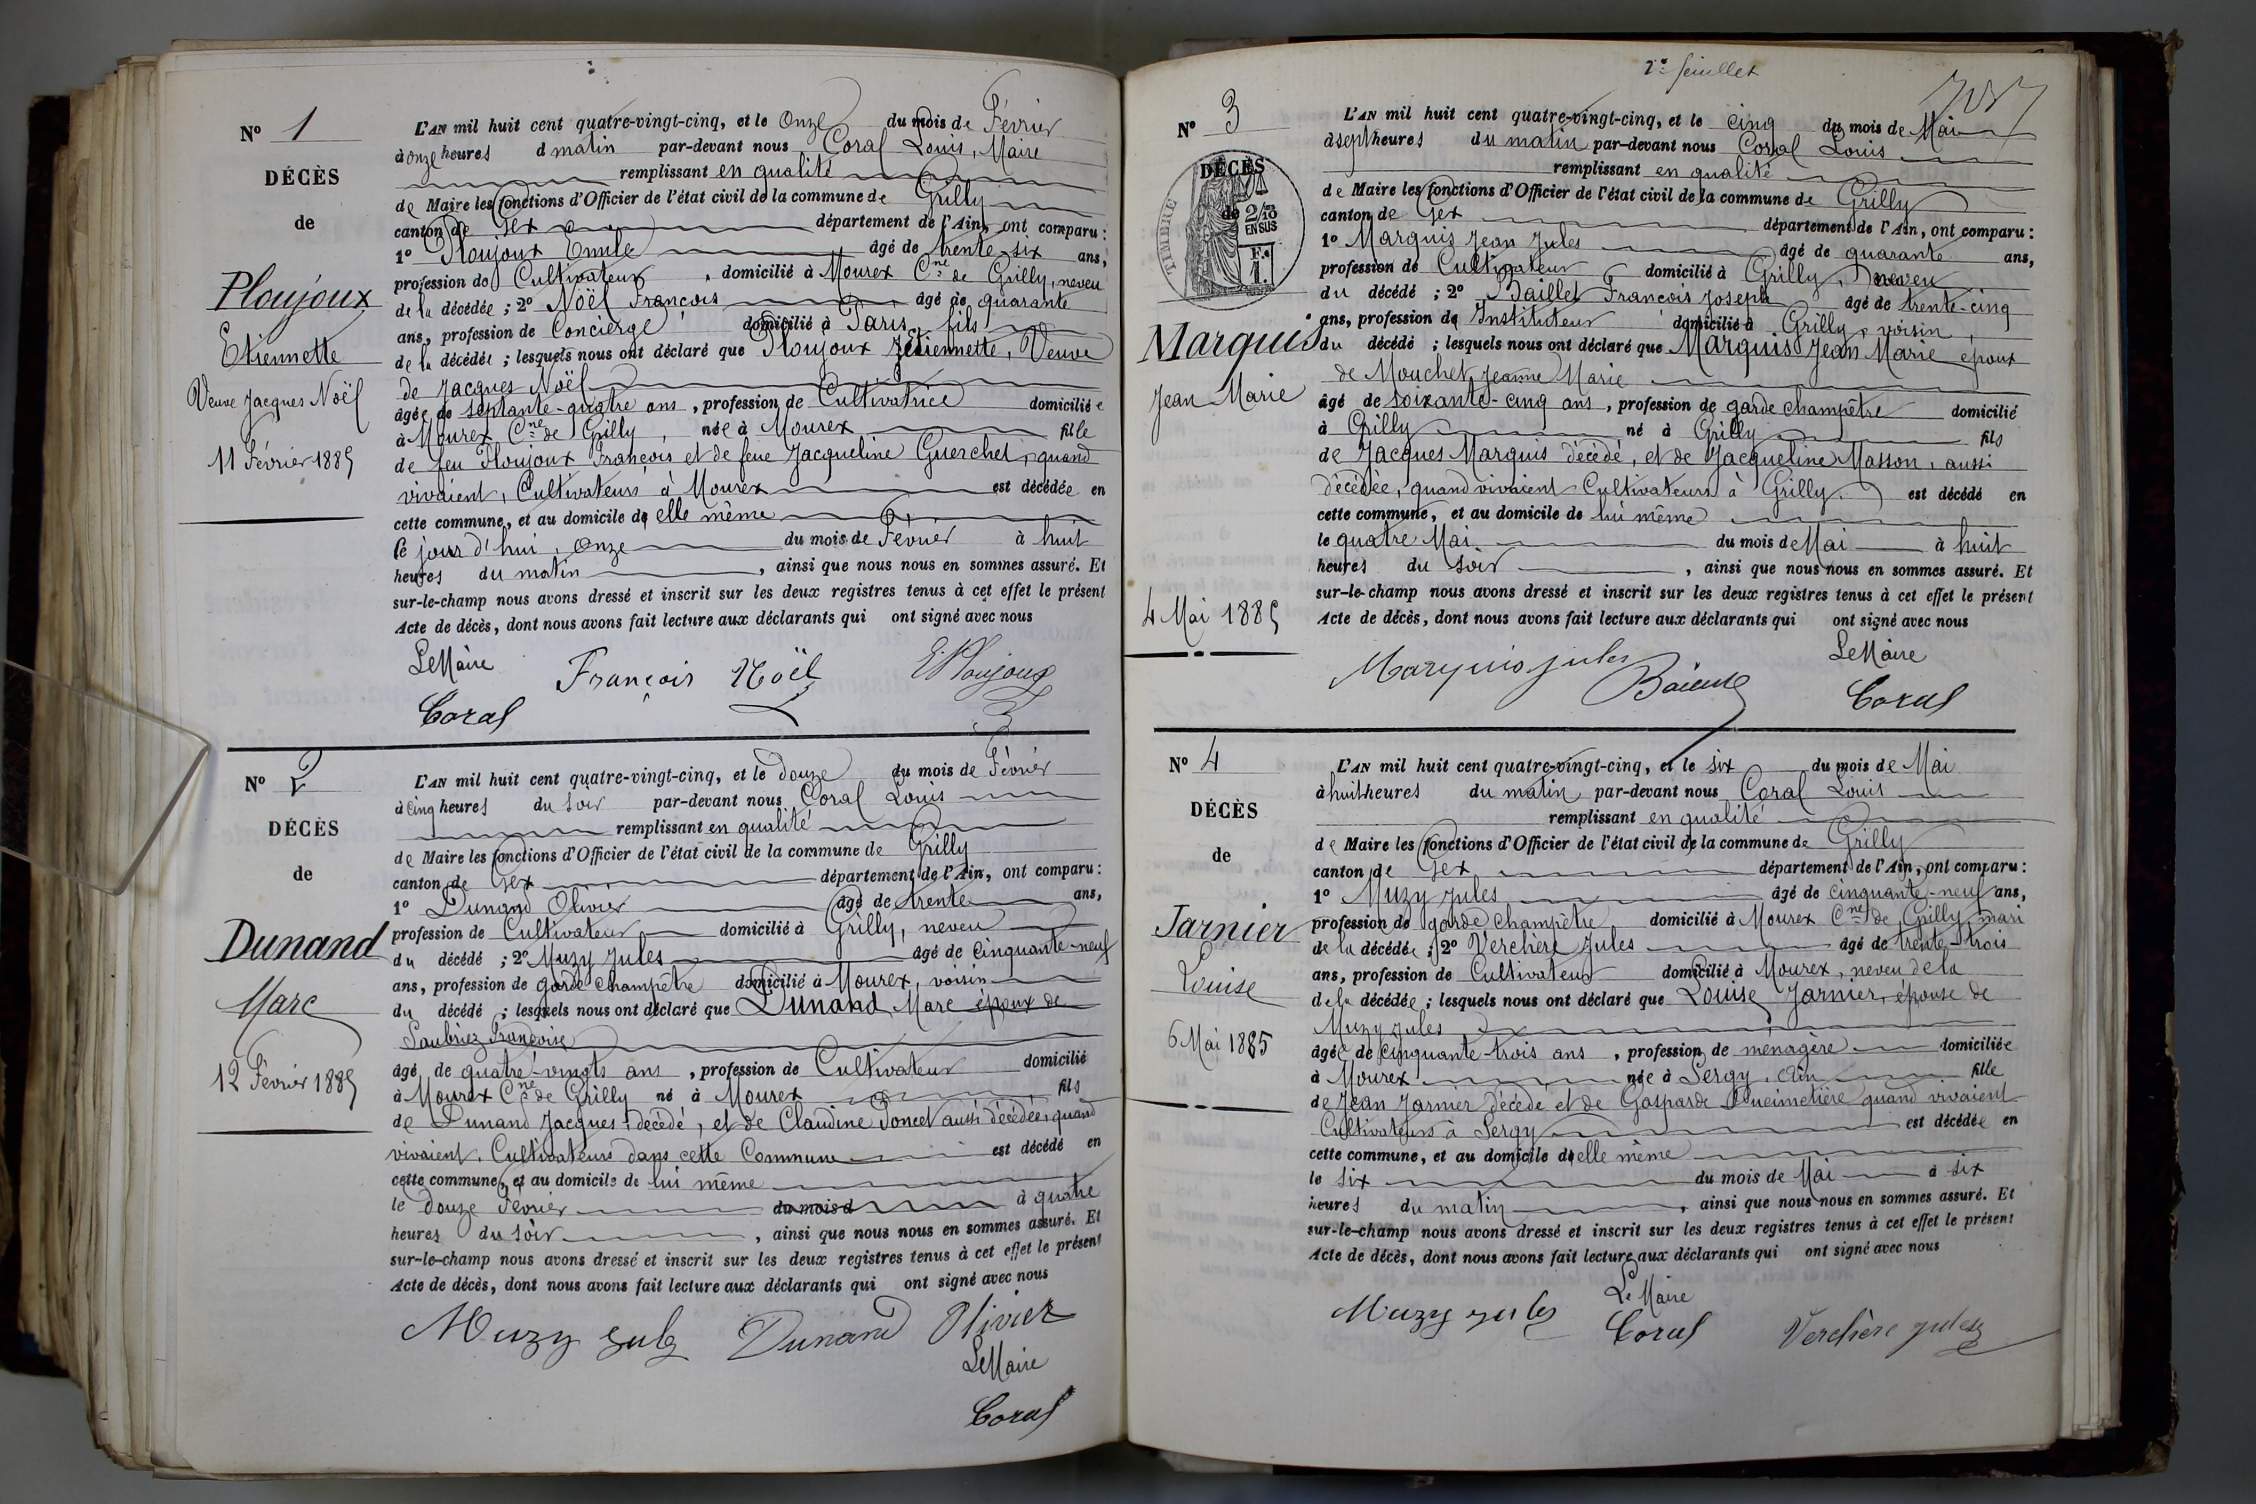 N° 1
DÉCÈS
de
Ploujoux
Etiennette
Veuve Jacques Noël
11 Février 1885
L'AN mil huit cent quatre-vingt-cinq, et le Onze du mois de Février
à onze heures d matin par-devant nous Coral Louis, Maire
remplissant en qualité
de Maire les fonctions d'Officier de l'état civil de la commune de Grilly
canton de Gex département de l'Ain, ont comparu :
1° Ploujoux Emile âgé de trente-six ans,
profession de Cultivateur, domicilié à Mourex Cne de Grilly, neveu
de la décédée ; 2° Noël François âgé de quarante
ans, profession de Concierge domicilié à Paris, fils
de la décédée ; lesquels nous ont déclaré que Ploujoux Etiennette, Veuve
de Jacques Noël
âgée de septante-quatre ans, profession de Cultivatrice domiciliée
à Mourex Cne de Grilly, née à Mourex fille
de feu Ploujoux François et de feue Jacqueline Guerchet, quand
vivaient, Cultivateurs à Mourex est décédée en
cette commune, et au domicile de elle même
le jour d'hui, onze du mois de Février à huit
heures du matin, ainsi que nous nous en sommes assuré. Et
sur-le-champ nous avons dressé et inscrit sur les deux registres tenus à cet effet le présent
Acte de décès, dont nous avons fait lecture aux déclarants qui ont signé avec nous
Le Maire François Noël E. Ploujoux
Coral
N° 2
DÉCÈS
de
Dunand
Marc
12 Février 1885
L'AN mil huit cent quatre-vingt-cinq, et le douze du mois de Février
à cinq heures du soir par-devant nous Coral Louis
remplissant en qualité
de Maire les fonctions d'Officier de l'état civil de la commune de Grilly
canton de Gex département de l'Ain, ont comparu :
1° Dunand Olivier âgé de trente ans,
profession de Cultivateur domicilié à Grilly, neveu
du décédé ; 2° Muzy Jules âgé de cinquante-neuf
ans, profession de garde champêtre domicilié à Mourex, voisin
du décédé ; lesquels nous ont déclaré que Dunand Marc époux de
Françoise
âgé de quatre-vingts ans, profession de Cultivateur domicilié
à Mourex Cne de Grilly né à Mourex fils
de Dunand Jacques décédé, et de Claudine Poncet aussi décédée, quand
vivaient, Cultivateurs dans cette Commune est décédé en
cette commune, et au domicile de lui même
le douze Février du mois d à quatre
heures du soir, ainsi que nous nous en sommes assuré. Et
sur-le-champ nous avons dressé et inscrit sur les deux registres tenus à cet effet le présent
Acte de décès, dont nous avons fait lecture aux déclarants qui ont signé avec nous
Muzy Jules Dunand Olivier
Le Maire
Coral
2e feuillet
N° 3
DÉCÈS
de
TIMBRE
2/10
EN SUS
F.c
1.
Marquis
Jean Marie
4 Mai 1885
L'AN mil huit cent quatre-vingt-cinq, et le cinq du mois de Mai
à sept heures du matin par-devant nous Coral Louis
remplissant en qualité
de Maire les fonctions d'Officier de l'état civil de la commune de Grilly
canton de Gex département de l'Ain, ont comparu :
1° Marquis Jean Jules âgé de quarante ans,
profession de Cultivateur domicilié à Grilly, neveu
du décédé ; 2° Baillet François Joseph âgé de trente-cinq
ans, profession de Instituteur domicilié à Grilly, voisin
du décédé ; lesquels nous ont déclaré que Marquis Jean Marie époux
de Mouchet Jeanne Marie
âgé de soixante-cinq ans, profession de garde champêtre domicilié
à Grilly né à Grilly fils
de Jacques Marquis décédé, et de Jacqueline Masson, aussi
décédée, quand vivaient Cultivateurs à Grilly. est décédé en
cette commune, et au domicile de lui même
le quatre Mai du mois de Mai à huit
heures du soir, ainsi que nous nous en sommes assuré. Et
sur-le-champ nous avons dressé et inscrit sur les deux registres tenus à cet effet le présent
Acte de décès, dont nous avons fait lecture aux déclarants qui ont signé avec nous
Le Maire
Marquis Jules
Coral
N° 4
DÉCÈS
de
Jarnier
Louise
6 Mai 1885
L'AN mil huit cent quatre-vingt-cinq, et le six du mois de Mai
à huit heures du matin par-devant nous Coral Louis
remplissant en qualité
de Maire les fonctions d'Officier de l'état civil de la commune de Grilly
canton de Gex département de l'Ain, ont comparu :
1° Muzy Jules âgé de cinquante-neuf ans,
profession de garde champêtre domicilié à Mourex Cne de Grilly mari
de la décédée ; 2° Verchère Jules âgé de trente-trois
ans, profession de Cultivateur domicilié à Mourex, neveu de la
de la décédée ; lesquels nous ont déclaré que Louise Jarnier, épouse de
Muzy Jules
âgée de cinquante-trois ans, profession de ménagère domiciliée
à Mourex née à Sergy, Ain fille
de Jean Jarnier décédé et de Gasparde quand vivaient
Cultivateurs à Sergy est décédée en
cette commune, et au domicile d'elle même
le six du mois de Mai à six
heures du matin, ainsi que nous nous en sommes assuré. Et
sur-le-champ nous avons dressé et inscrit sur les deux registres tenus à cet effet le présent
Acte de décès, dont nous avons fait lecture aux déclarants qui ont signé avec nous
Le Maire
Muzy Jules Coral Verchère Jules